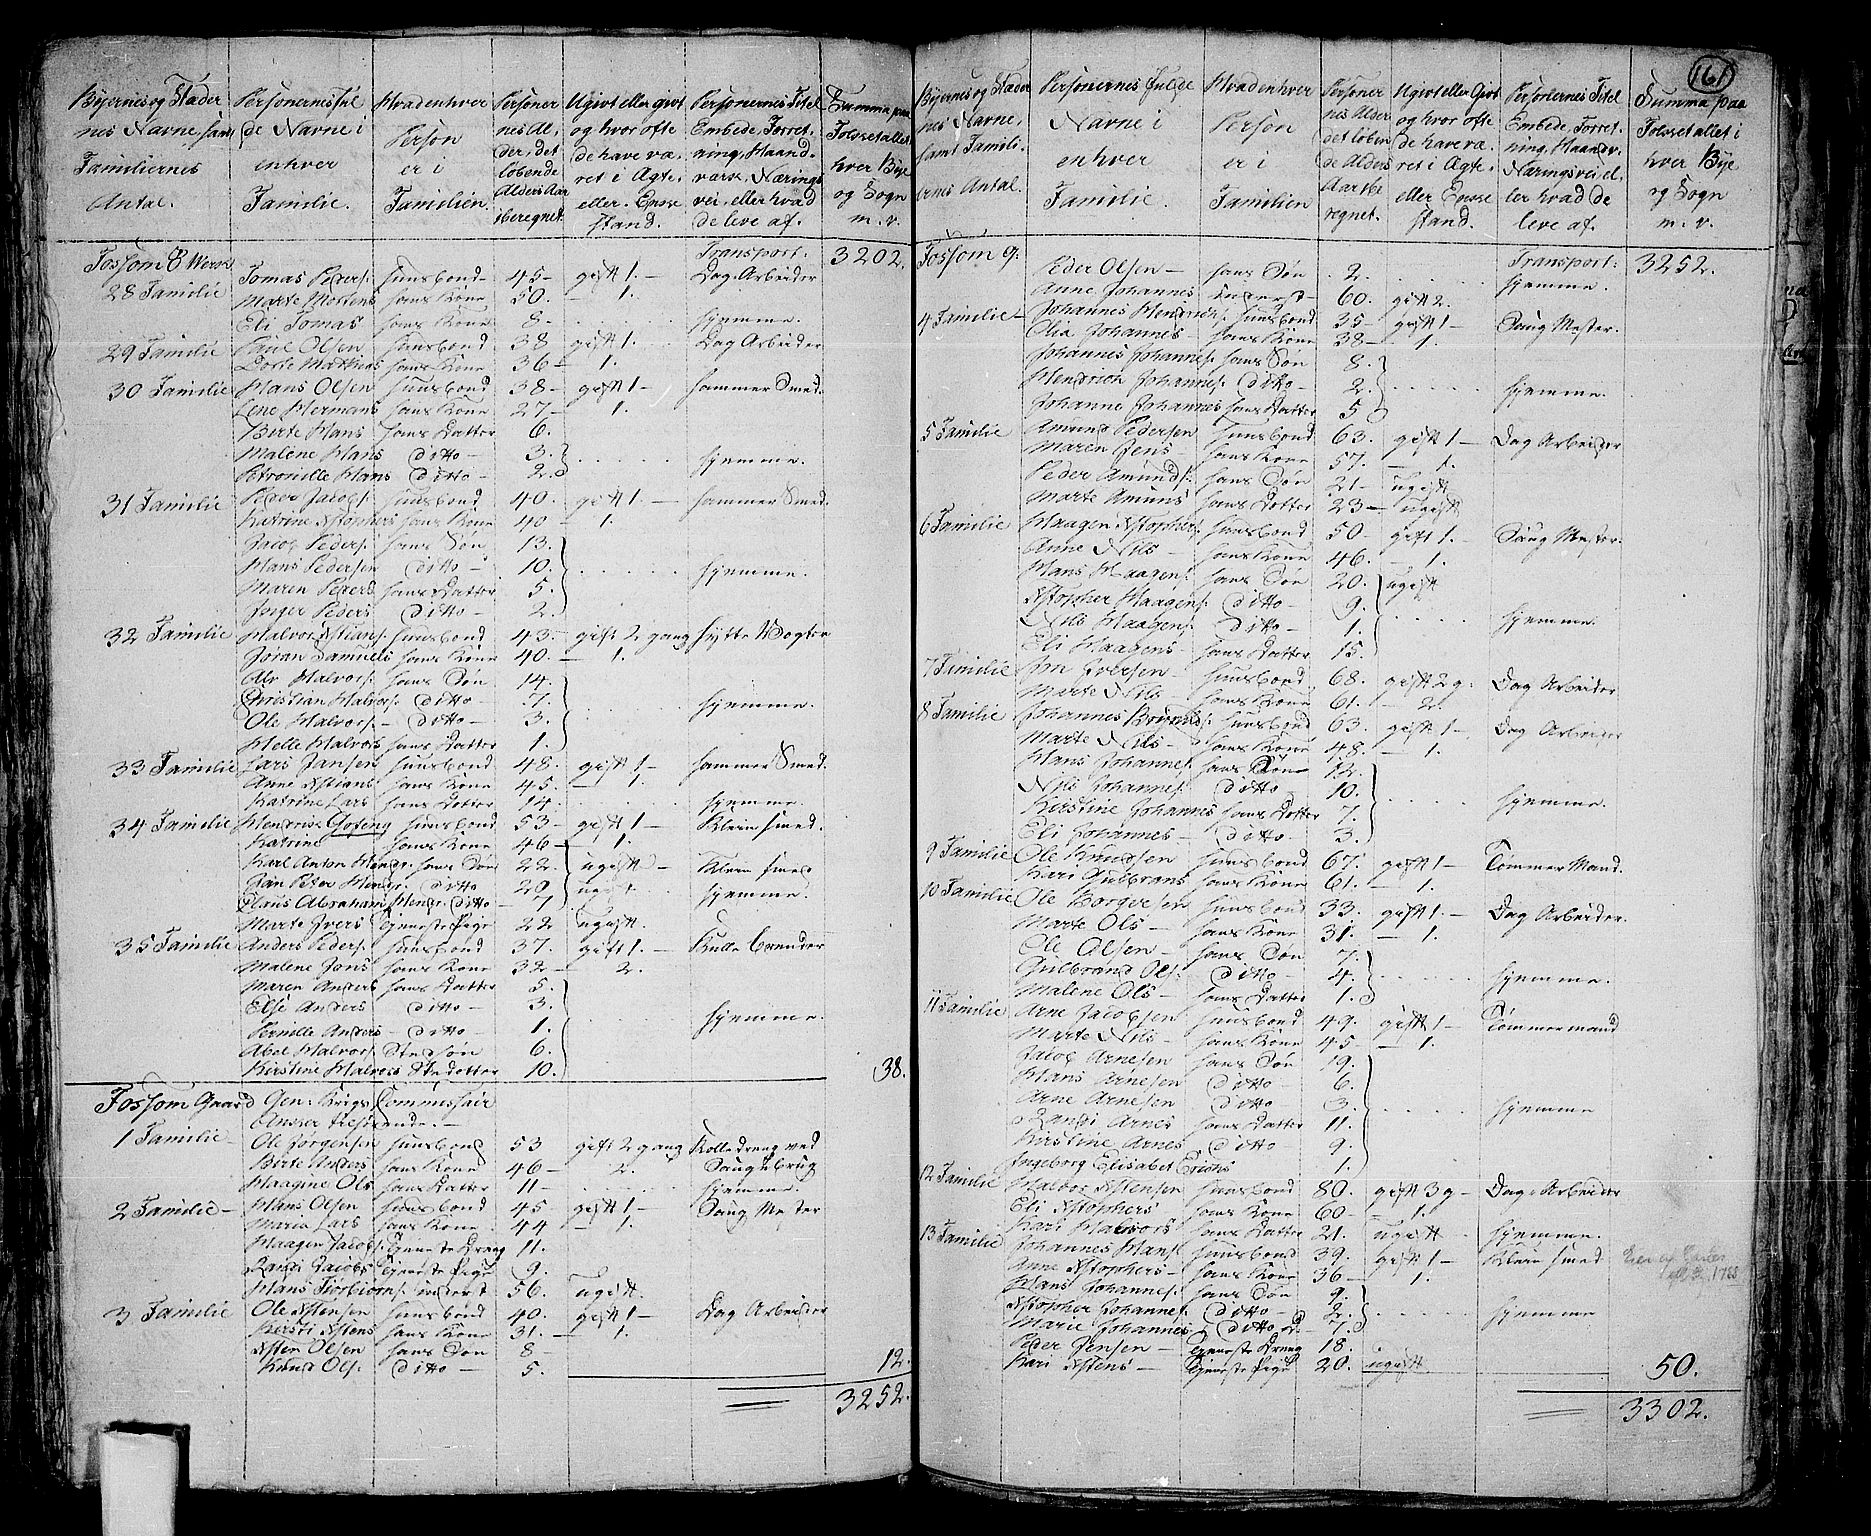 161
Byernes og Stæder
nes Navne, samt
Familiernes
Antal.
Personernes ful
de Navne i
enhver
Familie.
Hvad enhver
Person
er i
Familien.
Personer
nes Al,
der, det
løbende
Alders Aar
iberegnet
Ugivt eller givt
og hvor ofte
de have væ,
ret i Ægte,
eller Enke
stand.
Personernes Titel
Embede, Forret,
ning, Haand,
værk, Nærings
vei, eller hvad
de leve af.
Summa paa
Folketallet
hver Bye
og Sogn
m. v.
Fossom 8 Værk Transport: 3202.
28 Familie Tomas Peders: huusbond 45 gift 1. Dag Arbeider
Marte Mortens hans Kone 50. 1.
Eli Tomas hans 8 hjemme.
29 Familie Paul Olsen huusbond 38 gift 1. Dag Arbeider
Dorte Mathias hans Kone 36 1.
30 Familie Hans Olsen huusbond 38 gift 1 hammer Smed.
Lene Hermans hans Kone 27 1.
Birte Hans hans Datter 6.
Malene Hans ditto 3. hjemme.
Petronille Hans ditto 2.
31 Familie Peder Jacobs: huusbond 40. gift 1. hammer Smed.
Katrine Kstophers hans Kone 40 1.
Jacob Peders: hans Søn 13.
Hans Pedersen ditto 10. hjemme.
Maren Peders hans Datter 5.
Inger Peders ditto 2.
32 Familie Halvor Kstians: huusbond 43. gift 2 gang hytte Vogter
Jøran Samuels hans Kone 40. 1.
Alv Halvors: hans Søn 14.
Christian Halvors: ditto 7. hjemme.
Ole Halvors: ditto 3.
Helle Halvors hans Datter 1.
33 Familie Lars Jansen huusbond 48. gift 1 hammer Smed.
Anne Kstians hans Kone 45. 1.
Katrine Lars hans Datter 14. hjemme.
34 Familie Hendrik Gofeng huusbond 53 gift 1 Klein smed.
Katrine hans Kone 46 1.
Karl Anton Hendr. hans Søn 22. ugift Klein smed
Jan Peter Hendr. ditto 20 ugift hjemme.
Claus Abraham Hendr: ditto 7
Marte Ivers Tjeneste Pige 22 ugift.
35 Familie Anders Peders: huusbond 37. gift 1. Kulle brender
Malene Jans hans Kone 32 2.
Maren Anders hans Datter 5.
Else Anders ditto 3.
Pernille Anders ditto 1. hjemme.
Abel Halvors: Stedsøn 6.
Kirstine Halvors Stedatter 10. 38.
Fossom Gaard Gen: Krigs Commissair
Anker
1 Familie Ole Jørgensen huusbond 53 gift 2 gang Kolledreng ved
Birte Anders hans Kone 46 2. Saugebrug
Maagine Ols hans Datter 11 hjemme.
2 Familie Hans Olsen huusbond 45 gift 1 Saug Mester
Maria Lars hans Kone 44 1.
Haagen Jacobs: Tjeneste Dreng 11.
Randi Jacobs Tjeneste Pige 9.
Hans Torbiorns: inderst 56. ugift.
3 Familie Ole Astensen huusbond 40. gift 1 Dag Arbeider
Kersti Astens hans Kone 31. 1.
Asten Olsen hans Søn 8
Knud Ols: ditto 5. 12.
3252.
Byernes og Stæder
nes Navne,
samt Famili,
ernes Antal.
Personernes fulde
Navne i
enhver
Familie.
Hvad enhver
Person
er i
Familien
Personer
nes Alder
det løben
de Alders
Aar ibe
regnet.
Ugivt eller Givt
og hvor ofte
de have væ,
ret i Ægte,
eller Enke
stand.
Personernes Titel
Embede, Forret,
ning, Haandv,
Næringsvei el,
ler hvad de
leve af.
Summa paa
Folketallet i
hver Bye
og Sogn
m. v.
Fossom 9. Transport: 3252.
Peder Olsen hans Søn 2. hjemme.
Anne Johannes inderst 60. gift 2.
4 Familie Johannes Hendrich: huusbond 35 gift 1 Saug Mester.
Olia Johannes hans Kone 38 1.
Johannes Johannes: hans Søn 8.
Hendrich Johannes: ditto 2. hjemme.
Johanne Johannes hans Datter 5
5 Familie Amund Pedersen huusbond 63. gift 1 Dag Arbeider
Maren Jens hans Kone 57. 1.
Peder Amunds: hans Søn 21 ugift
Marte Amunds hans Datter 23 ugift
6 Familie Haagen Kstophers: huusbond 50. gift 1. Saug Mester.
Anne Nils hans Kone 46. 1.
Hans Haagens: hans Søn 20. ugift
Kstopher Haagens: ditto 9.
Nils Haagens: ditto 1. hjemme.
Eli Haagens hans Datter 15.
7 Familie Jon Iversen huusbond 68. gift 2 g. Dag Arbeider
Marte Nils hans Kone 61. 2.
8 Familie Johannes huusbond 63. gift 1. Dag Arbeider
Marte Nils hans Kone 48. 1.
Hans Johannes: hans Søn 12.
Nils Johannes: ditto 10. hjemme.
Kirstine Johannes hans Datter 7.
Eli Johannes ditto 3.
9 Familie Ole Knudsen huusbond 67. gift 1 Tømmer Mand.
Kari Gulbrans hans Kone 61. 1.
10 Familie Ole Borgersen huusbond 33. gift 1. Dag Arbeider.
Marte Ols hans Kone 31. 1.
Ole Olsen hans Søn 7.
Gulbrand Ols: ditto 4. hjemme.
Malene Ols hans Datter 1.
11 Familie Arne Jacobsen huusbond 49. gift 1 Tømmermand
Marte Nils hans Kone 45 1.
Jacob Arnesen hans Søn 19.
Hans Arnesen ditto 6.
Arne Arnesen ditto 3. hjemme
Randi Arnes hans Datter 11.
Kirstine Arnes ditto 9.
Ingeborg Elisabet Erichs 1.
12 Familie Halvor Astensen huusbond 80. gift 3 g Dag Arbeider
Eli Kstophers hans Kone 60 1.
Kari Halvors hans Datter 21. ugift hjemme.
13 Familie Johannes Hans: huusbond 39. gift 1 Klein smed
Anne Kstophers hans Kone 36 1.
Hans Johannes: hans Søn 9.
Kstopher Johannes: ditto 2. hjemme
Marie Johannes ditto D. 7.
Peder Jensen Tjeneste Dreng 18.
Kari Astens Tjeneste Pige 20. ugift 50.
3302.